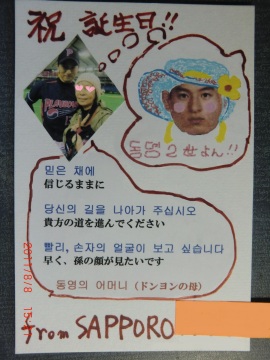 祝 誕生日!!
동영 2세よん!!
믿은 채에
信じるままに
당신의 길을 나아가 주십시오
貴方の道を進んでください
빨리, 손자의 얼굴이 보고 싶습니다
早く、孫の顔が見たいです
동영의 어머니 (ドンヨンの母)
from SAPPORO